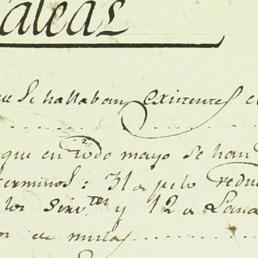 ue se hallaban existentes e
que en todo mayo se han
terminos: 31 a pelo redu
los sirv.tes y 12 a Lana
or de mulas